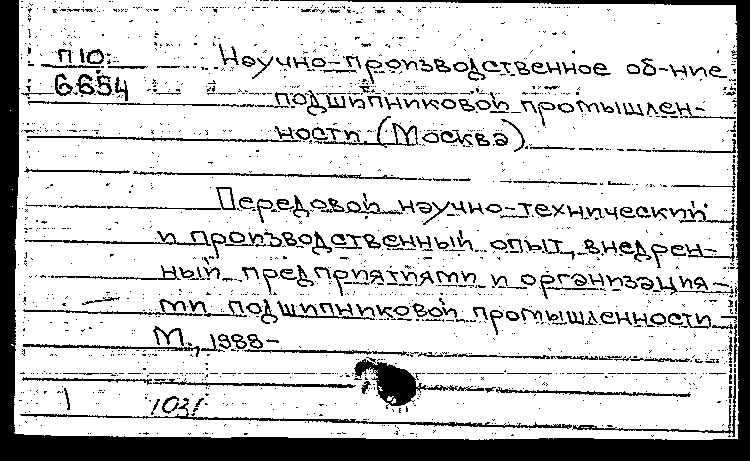 П10: Научно-производственное об-ние
6654 подшипниковой промышлен-
ности (Москва)
Передовой научно-технический
и производственный опыт, внедрен-
ный предприятиями и организация-
ми подшипниковой промышленности –
М., 1988–
1 1031